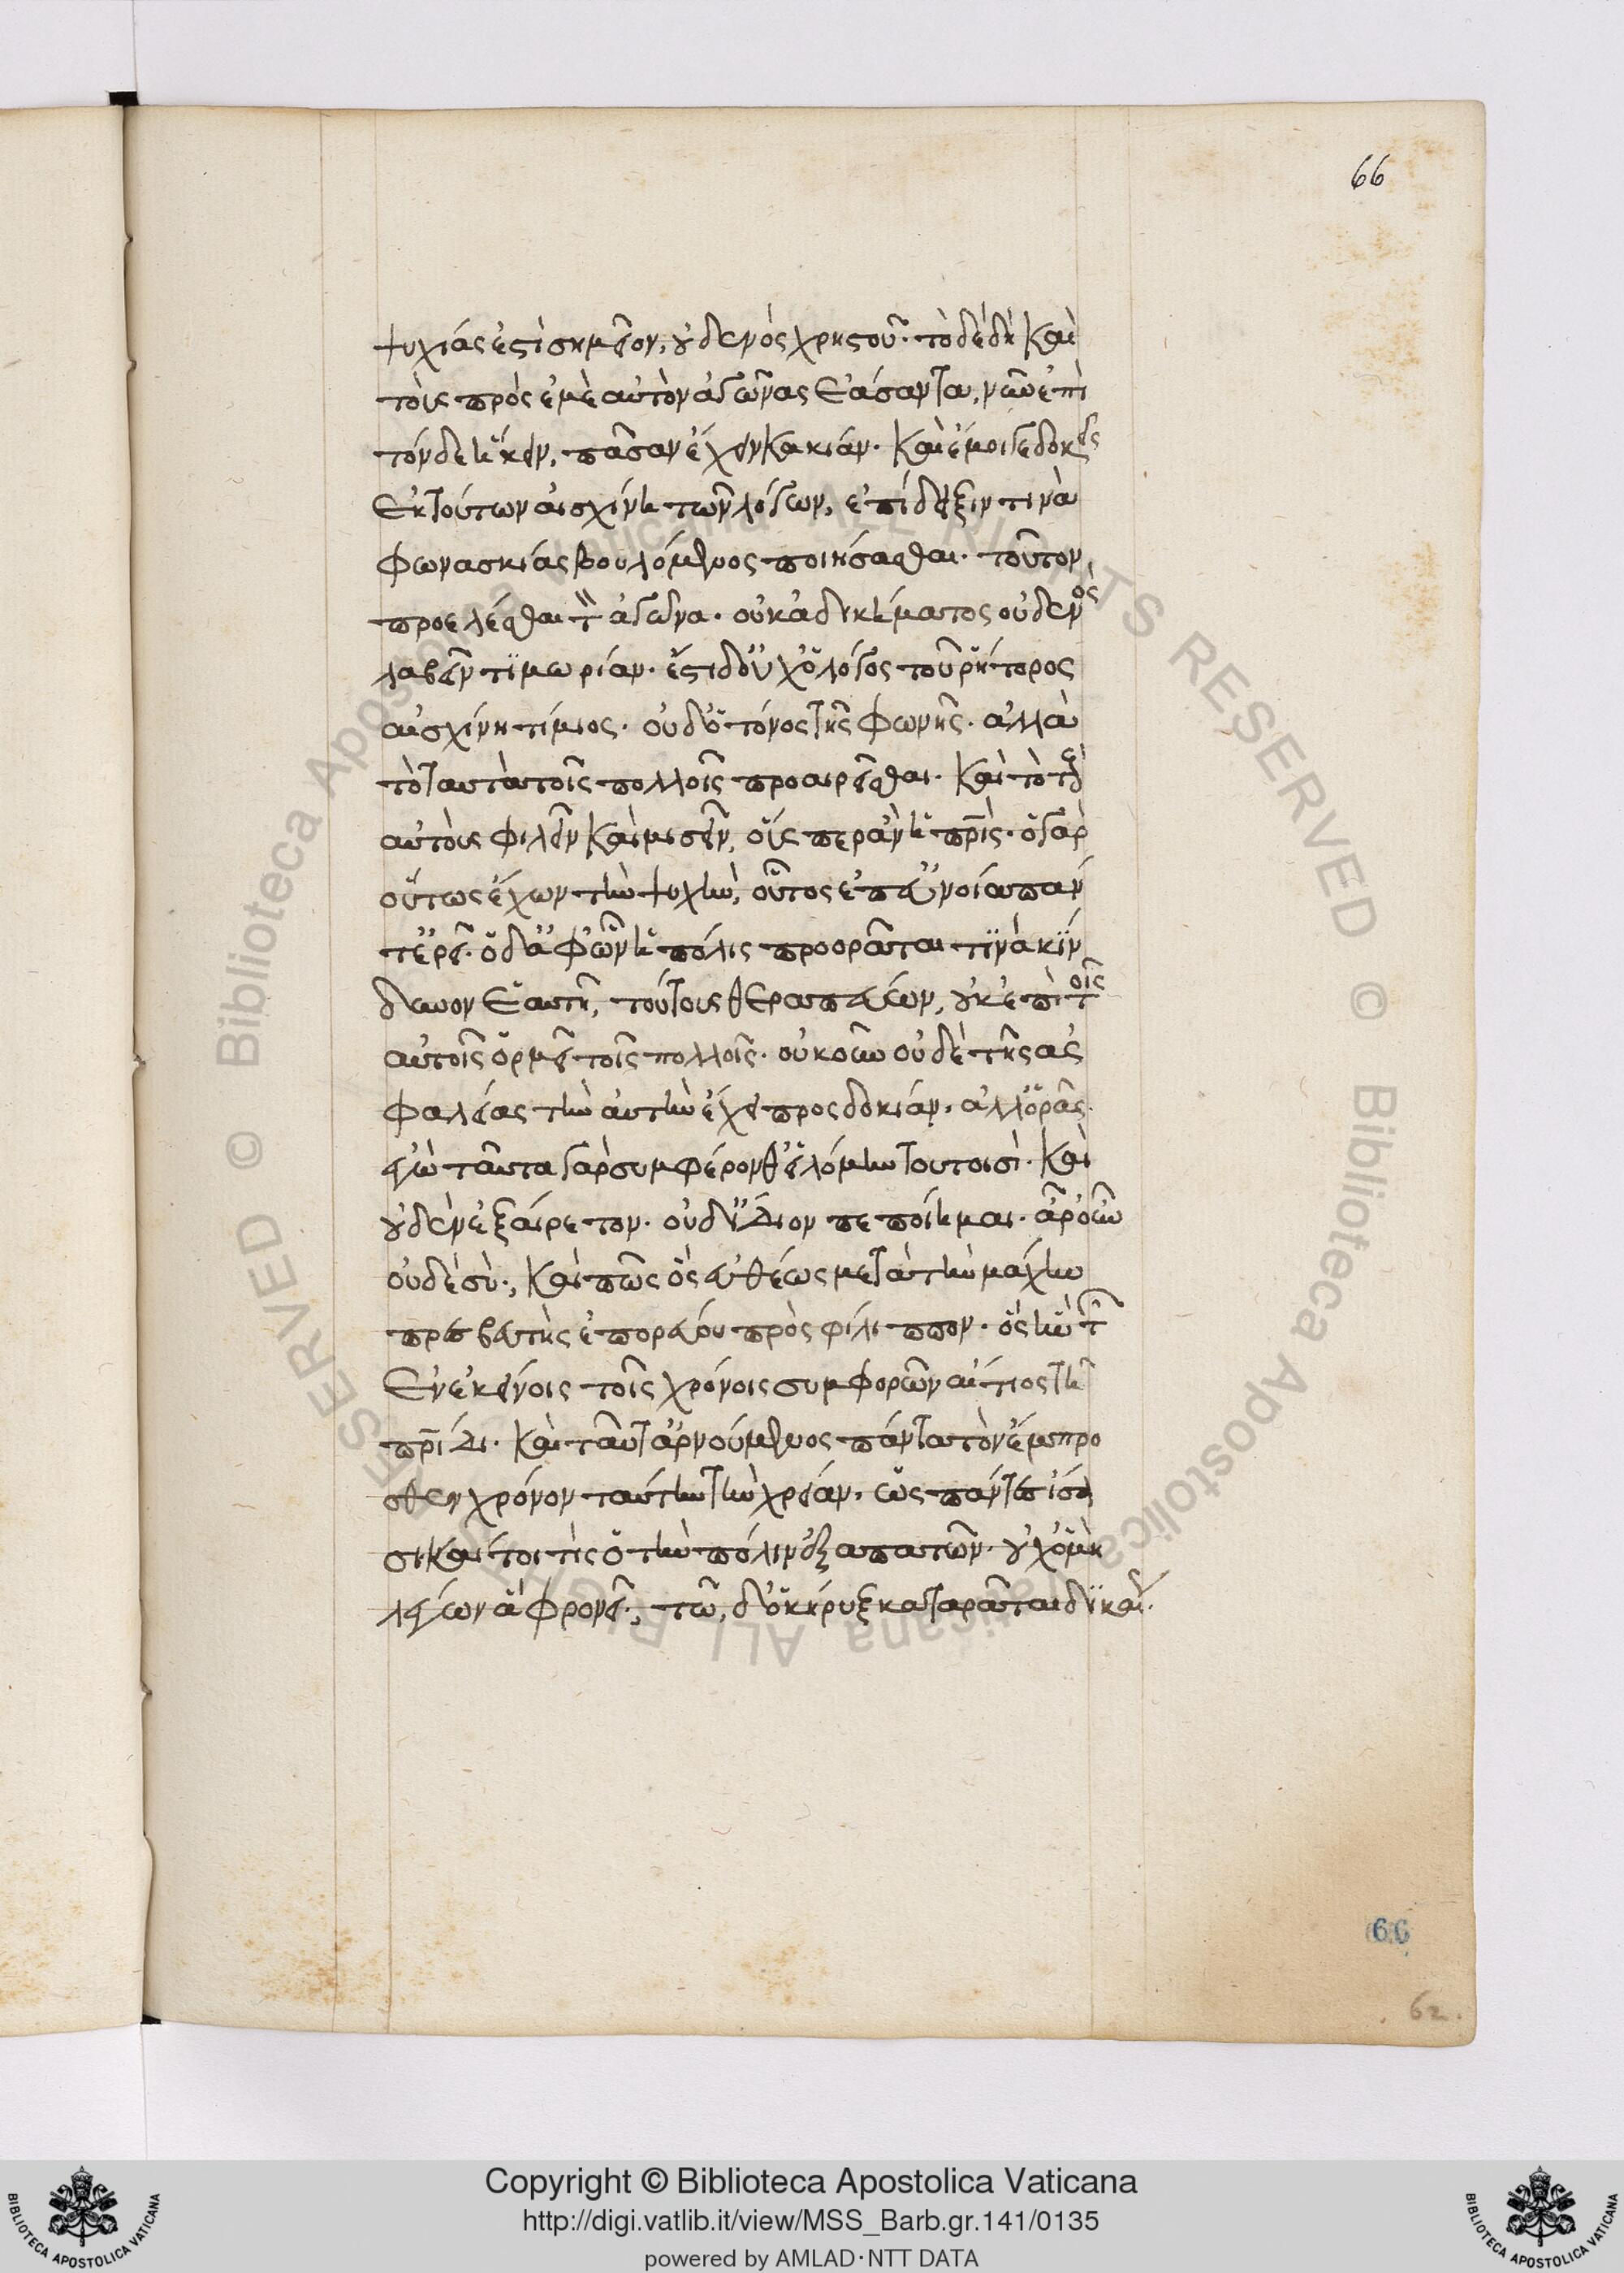 66
ψυχίας ἐστὶ σημεῖον, οὐδενὸς χρηστοῦ. τὸ δὲ δὴ καὶ
τοὺς πρὸς ἐμὲ αὐτὸν ἀγῶνας ἐάσαντα, νῦν ἐπὶ
τόνδε ἥκειν, πᾶσαν ἔχειν κακίαν. καὶ ἔμοιγε δοκεῖς
ἐκ τούτων αἰσχίνη τῶν λόγων, ἐπίδειξίν τινα
φωνασκίας βουλόμενος ποιήσασθαι. τοῦτον
προελέσθαι τὸν ἀγῶνα. οὐκ ἀδικήματος οὐδενὸς
λαβεῖν τιμωρίαν. ἔστι δ' οὐχ ὁ λόγος τοῦ ῥήτορος
αἰσχίνη τίμιος. οὐδ' ὁ τόνος τῆς φωνῆς. ἀλλὰ
τὸ ταὐτὰ τοῖς πολλοῖς προαιρεῖσθαι. καὶ τὸ τοὺς
αὐτοὺς φιλεῖν καὶ μισεῖν, οὕσπερ ἂν ἡ πρὶς. ὁ γὰρ
οὕτως ἔχων τὴν ψυχὴν, οὗτος ἐπ' εὐνοία πάν
τ' ἐρεῖ. ὁ δ' ἀφ' ὧν ἡ πόλις προορᾶται τινὰ κίν
δυνον ἑαυτῆ, τούτους θεραπεύων, οὐκ ἐπὶ τοῖς
αὐτοῖς ὁρμεῖ τοῖς πολλοῖς. οὐκοῦν οὐδὲ τῆς ἀσ
φαλείας τὴν αὐτὴν ἔχει προσδοκίαν. ἀλλ' ὁρᾶς.
ἐγὼ ταῦτα γὰρ συμφέρονθ' εἱλόμην τουτοισὶ. καὶ
οὐδὲν ἐξαίρετον. οὐδ' ἴδιον πεποίημαι. ἆρ' οὖν
οὐδὲ σὺ; καὶ πῶς ὃς εὐθέως μετὰ τὴν μάχην
πρεσβευτὴς ἐπορεύου πρὸς φίλιππον. ὃς ἦν τῶν
ἐν ἐκείνοις τοῖς χρόνοις συμφορῶν αἴτιος τῆ
πρίδι. καὶ ταῦτ' ἀρνούμενος πάντα τὸν ἔμπρο
σθεν χρόνον ταύτην τὴν χρείαν, ὡς πάντες ἴσα
σι. καίτοι τὶς ὁ τὴν πόλιν ἐξαπατῶν. οὐχ ὁ μὴ
λέγων ἃ φρονεῖ; τῶ, δ' ὁ κήρυξ καταρᾶται δικαί.
66
62.
Copyright © Biblioteca Apostolica Vaticana
http://digi.vatlib.it/view/MSS_Barb.gr.141/0135
powered by AMLAD·NTT DATA